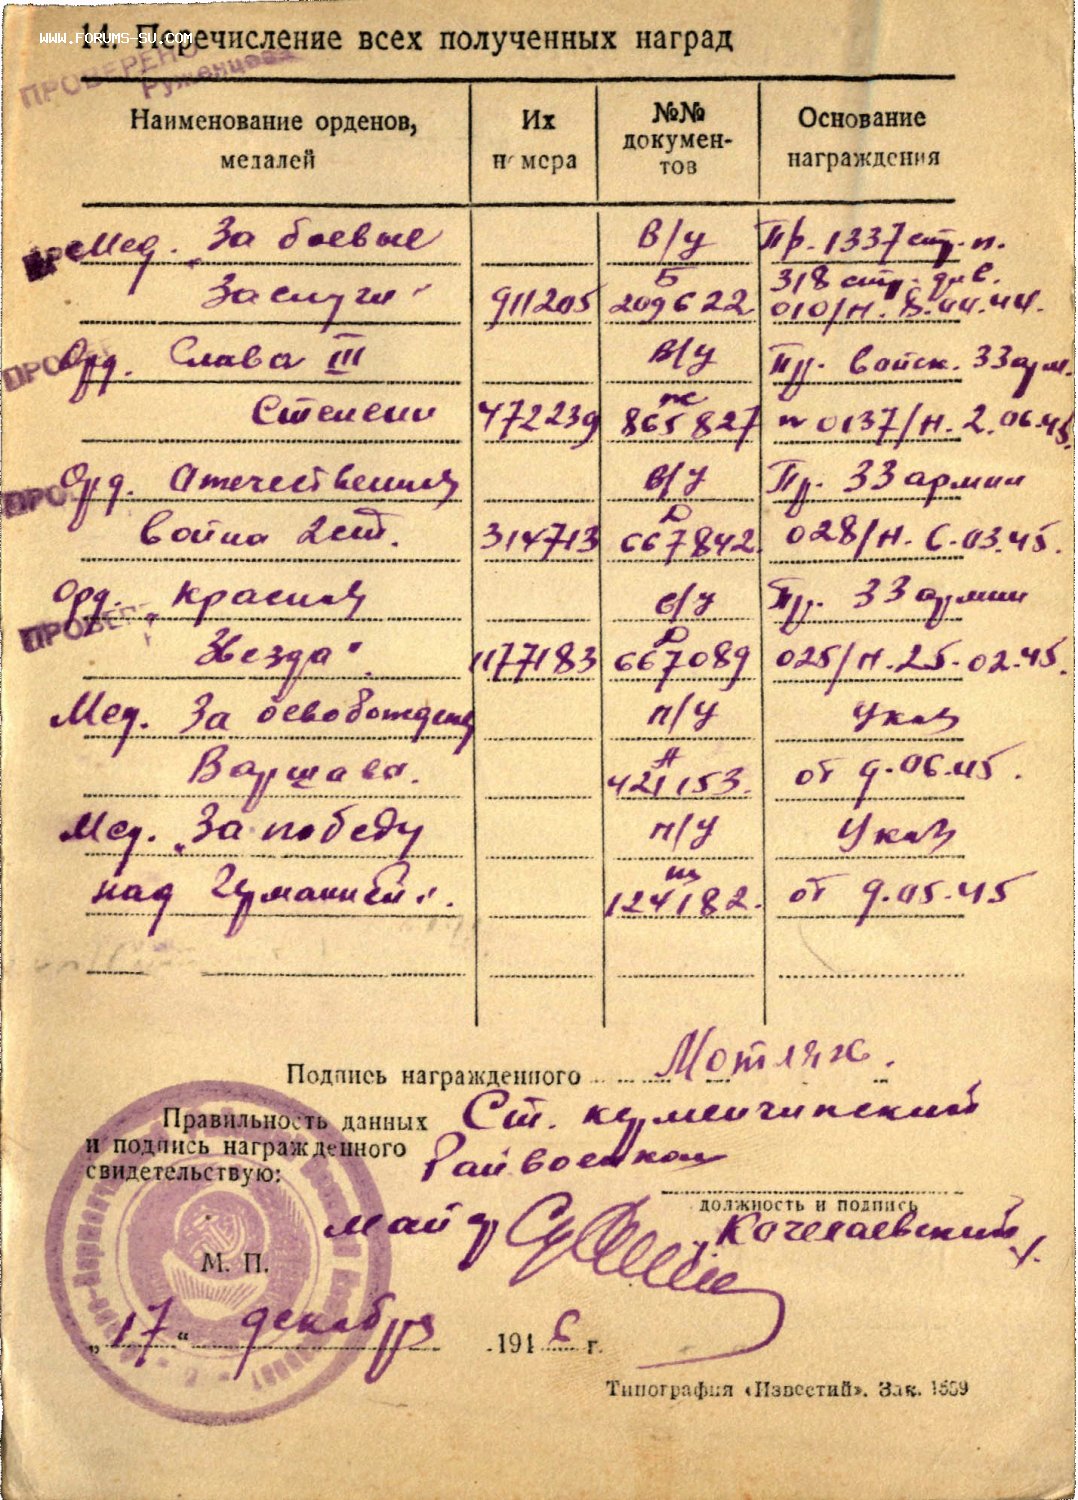 www.forums-su.com
14. Перечисление всех полученных наград
ПРОВЕРЕНО
Руженцова
Наименование орденов, медалей
Их номера
№№ докумен-тов
Основание награждения
Мед. „За боевые В/у Пр. 1337 стр. п.
318 стр. див.
Заслуги" 911205 Б 209622 010/н. 8.44.
Орд. Слава III В/у Пр. войск. 33 арм.
Степени 472239 ж 865827 0137/н. 2.06.45.
Орд. Отечественная в/у Пр. 33 армии
Война 2 ст. 314713 Д 667842. 028/н. 6.03.45.
Орд. „Красная в/у Пр. 33 армии
Звезда". 1177183 Д 667089 025/н. 25.02.45.
Мед. За освобождения п/у Указ
Варшава. А 421153. от 9.06.45.
Мед. „За победу п/у Указ
над Германией". ш 124182. от 9.05.45
Подпись награжденного Мотляж.
Правильность данных
и подпись награжденного
свидетельствую:
Ст.
Райвоенком
должность и подпись
майор
М. П.
„17" декабря 1946 г.
Типография «Известий». Зак. 1559